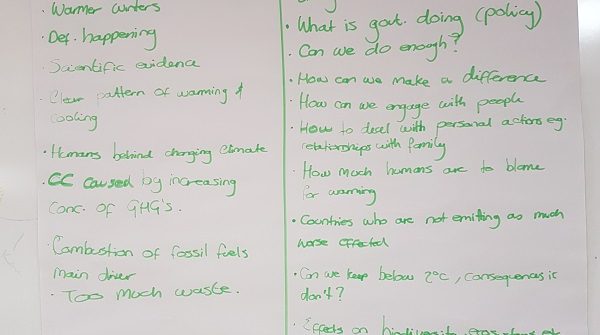 · Warmer winters
· Def. happening
· Scientific evidence
· Clear pattern of warming &
cooling
· Humans behind changing climate
· CC caused by increasing
conc. of GHG's.
· Combustion of fossil fuels
main driver
· Too much waste.
· What is govt. doing (policy)
· Can we do enough?
· How can we make a difference
· How can we engage with people
· How to deal with personal actions eg.
relationships with family
· How much humans are to blame
for warming
· Countries who are not emitting as much
worse affected
· Can we keep below 2°C, consequences if
don't?
· Effects on biodiversity,